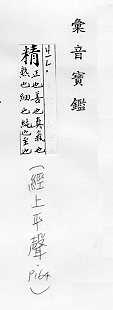 彙音寶鑑
精 正也善也真氣也
熟也細也純也至也
(經上平聲.P164)